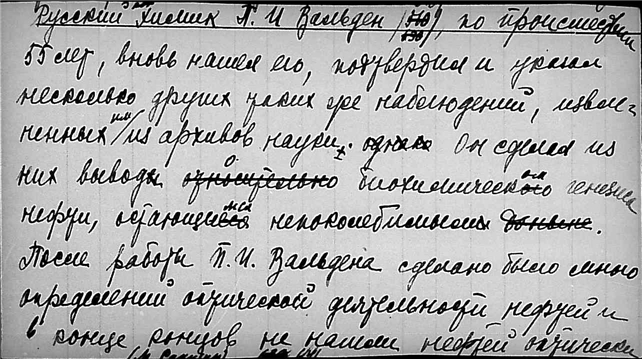 Русский химик П. И Вальден /510 530/, по происшествии
55 лет, вновь нашел его, подтвердил и указал
несколько других таких же наблюдений, извле-
ченных им из архивов науки. однако Он сделал из
них выводы относительно о биохимическом генезисе
нефти, остающиеся непоколебимыми доныне.
После работы П. И. Вальдена сделано было много
определений оптической деятельности нефтей и
в конце концов не нашли нефтей оптически